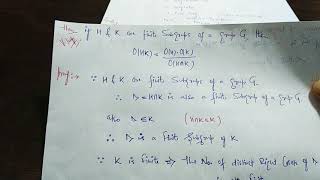 if H & K are finite Subgroups of a group G, then
O(HK) = O(H)·O(K) / O(H∩K)
∵ H & K are finite Subgroups of a group G.
∴ D = H∩K is also a finite Subgroup of a group G
also D ⊆ K (H∩K ⊆ K)
∴ D is a finite Subgroup of K
∵ K is finite ⇒ the No. of distinct Right Cosets of D